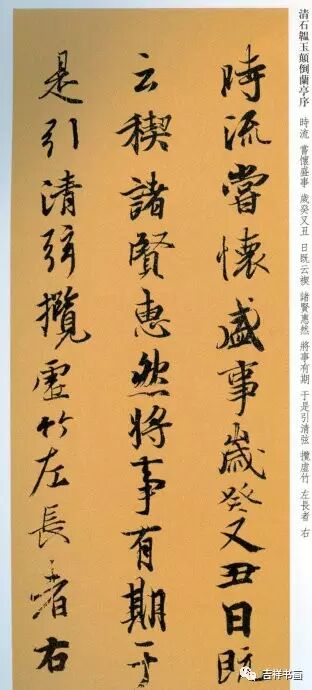 清石韞玉顛倒蘭亭序 時流 嘗懷盛事 歲癸又丑 日既云稧 諸賢惠然 將事有期 于是引清弦 攬虛竹 左長者 右
時流嘗懷盛事歲癸又丑日既
云稧諸賢惠然將事有期于
是引清弦攬虛竹左長者右
吉祥书画